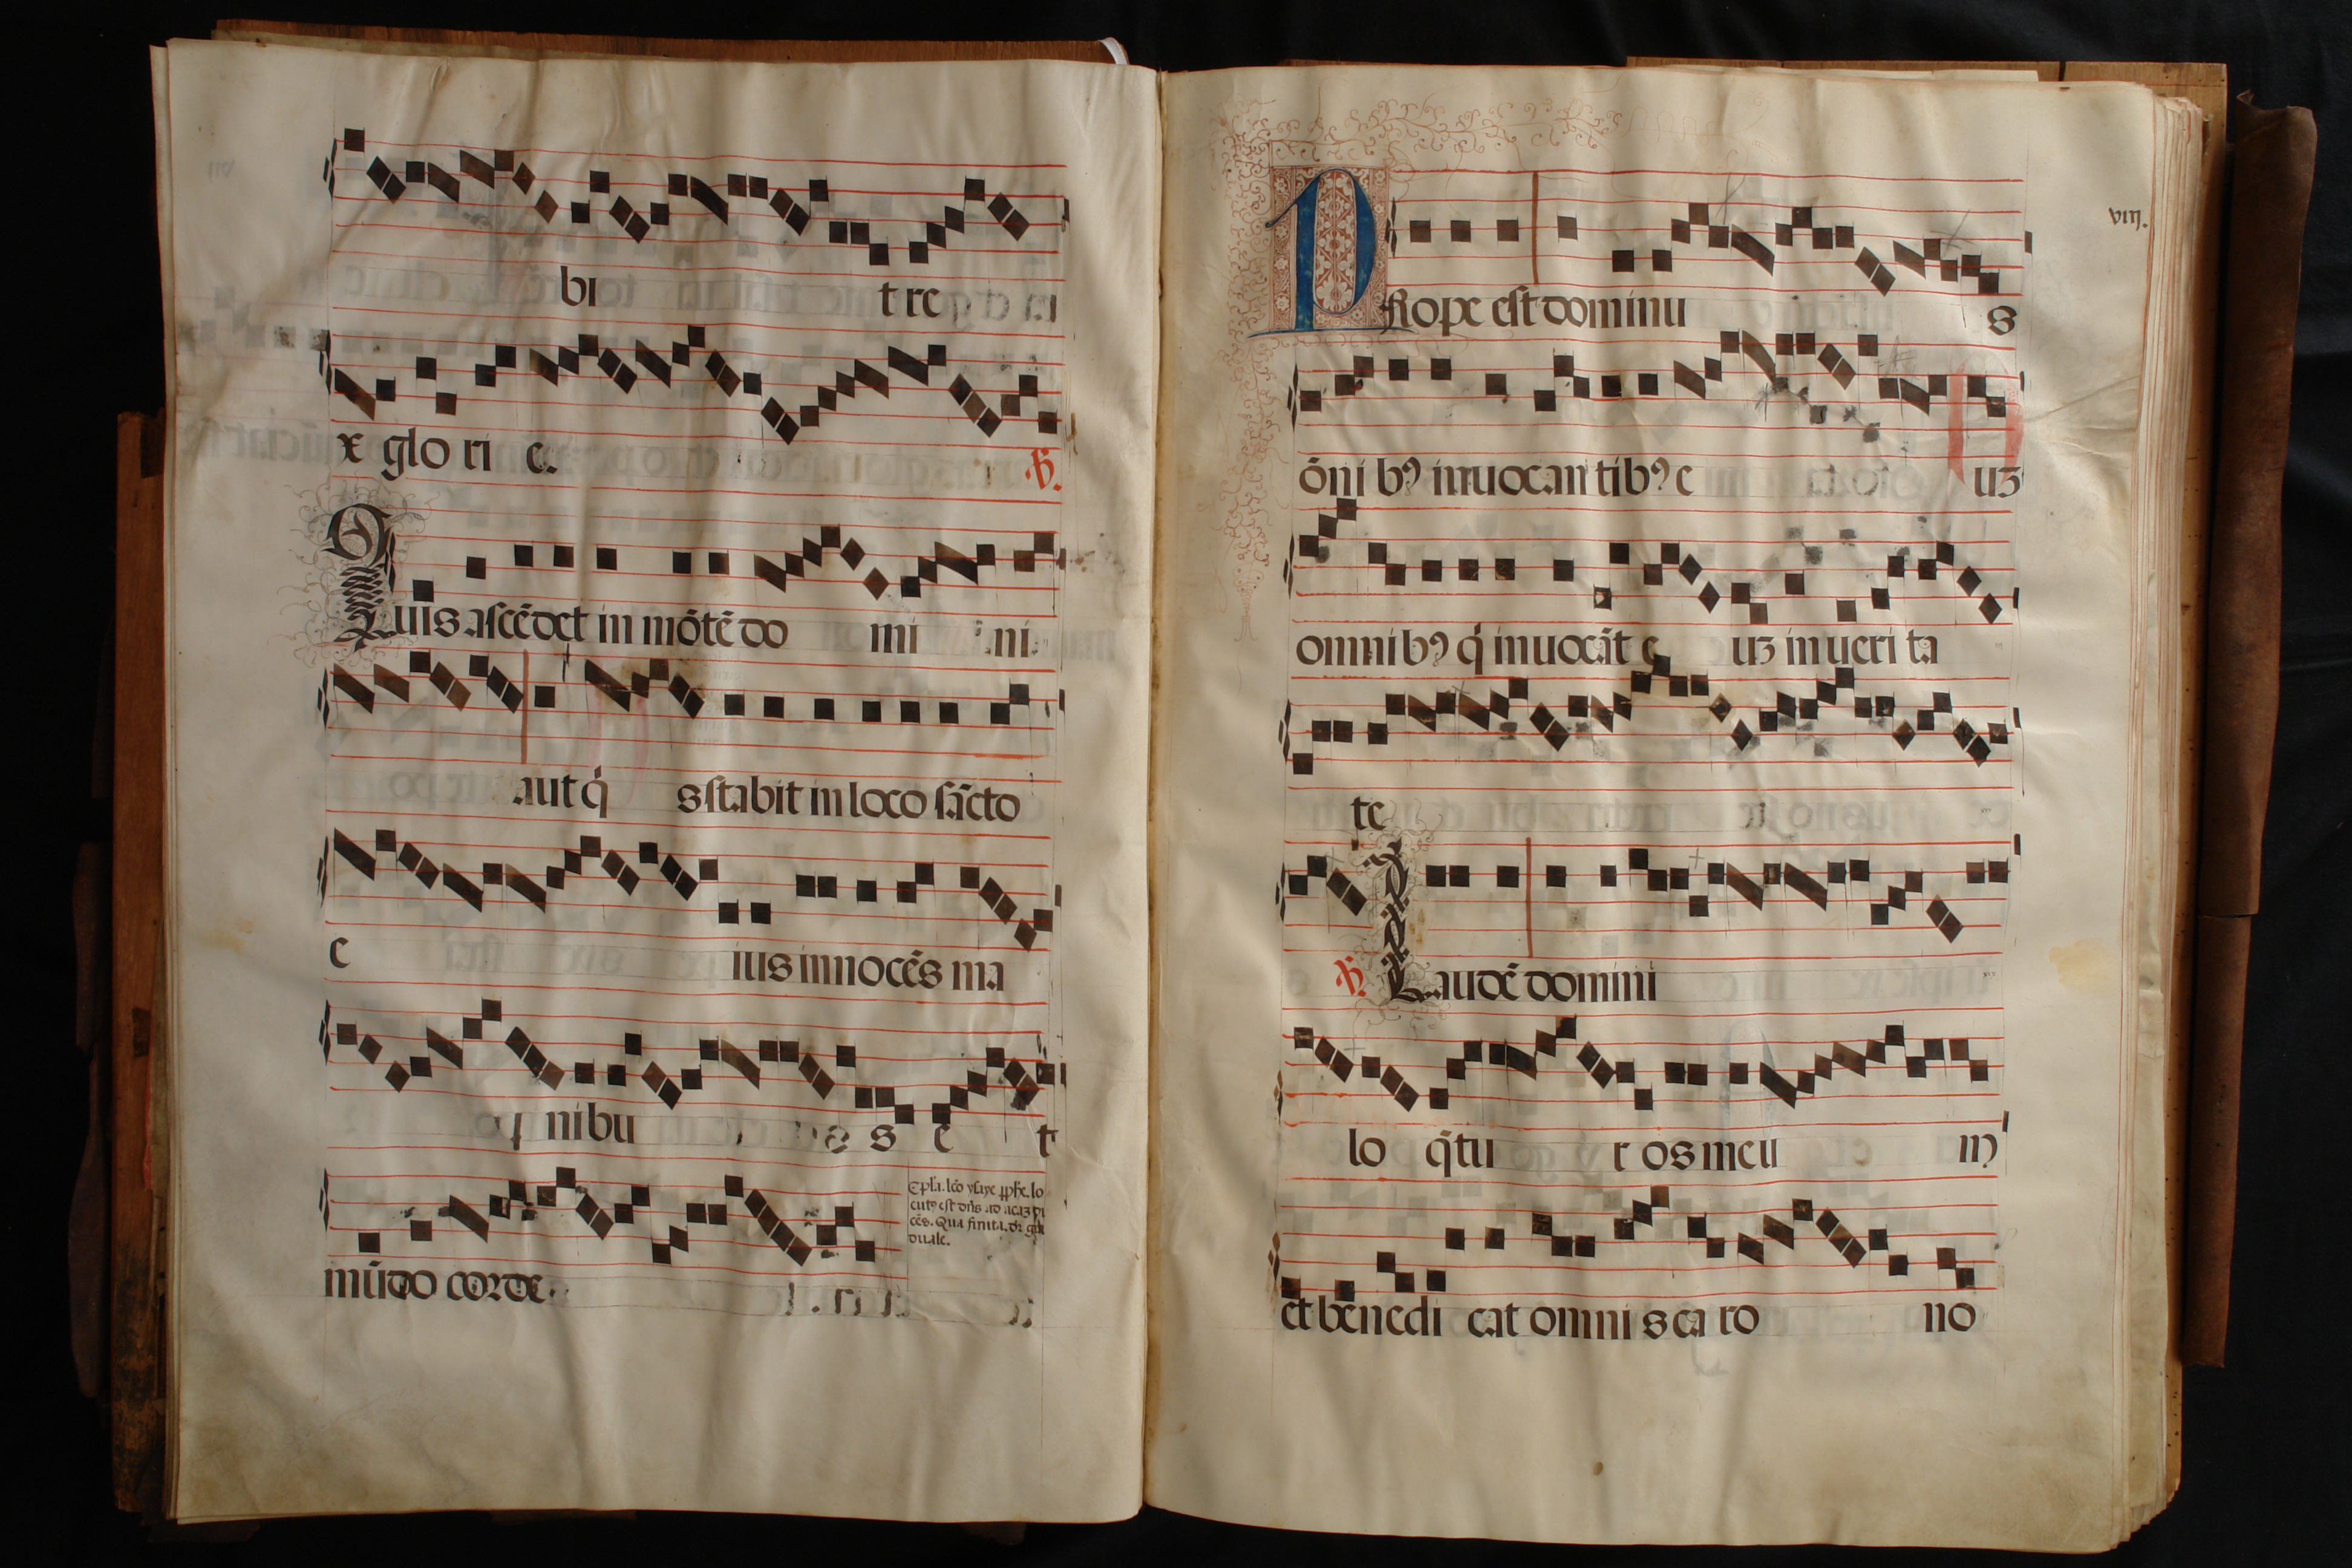 bi t re
x glo ri e. ℟.
Quis ascēdet in mōtē do mi ni
aut q̇ s stabit in loco sācto
e ius innocēs ma
nibu s e t
mūdo corde.
Epl̄a. lc̄o ysaye ꝓphe. lo
cutꝰ est dn̄s ad acaz di
cēs. Qua finita. dr̄ gra
duale.
viij.
PRope est dominu s
ōni bꝫ inuocan tibꝫ e uꝫ
omnibꝫ q̇ inuocāt e uꝫ in ueri ta
te
℟. Laudē domini
lo q̄tu r os meu m
et benedi cat omni s ca ro no